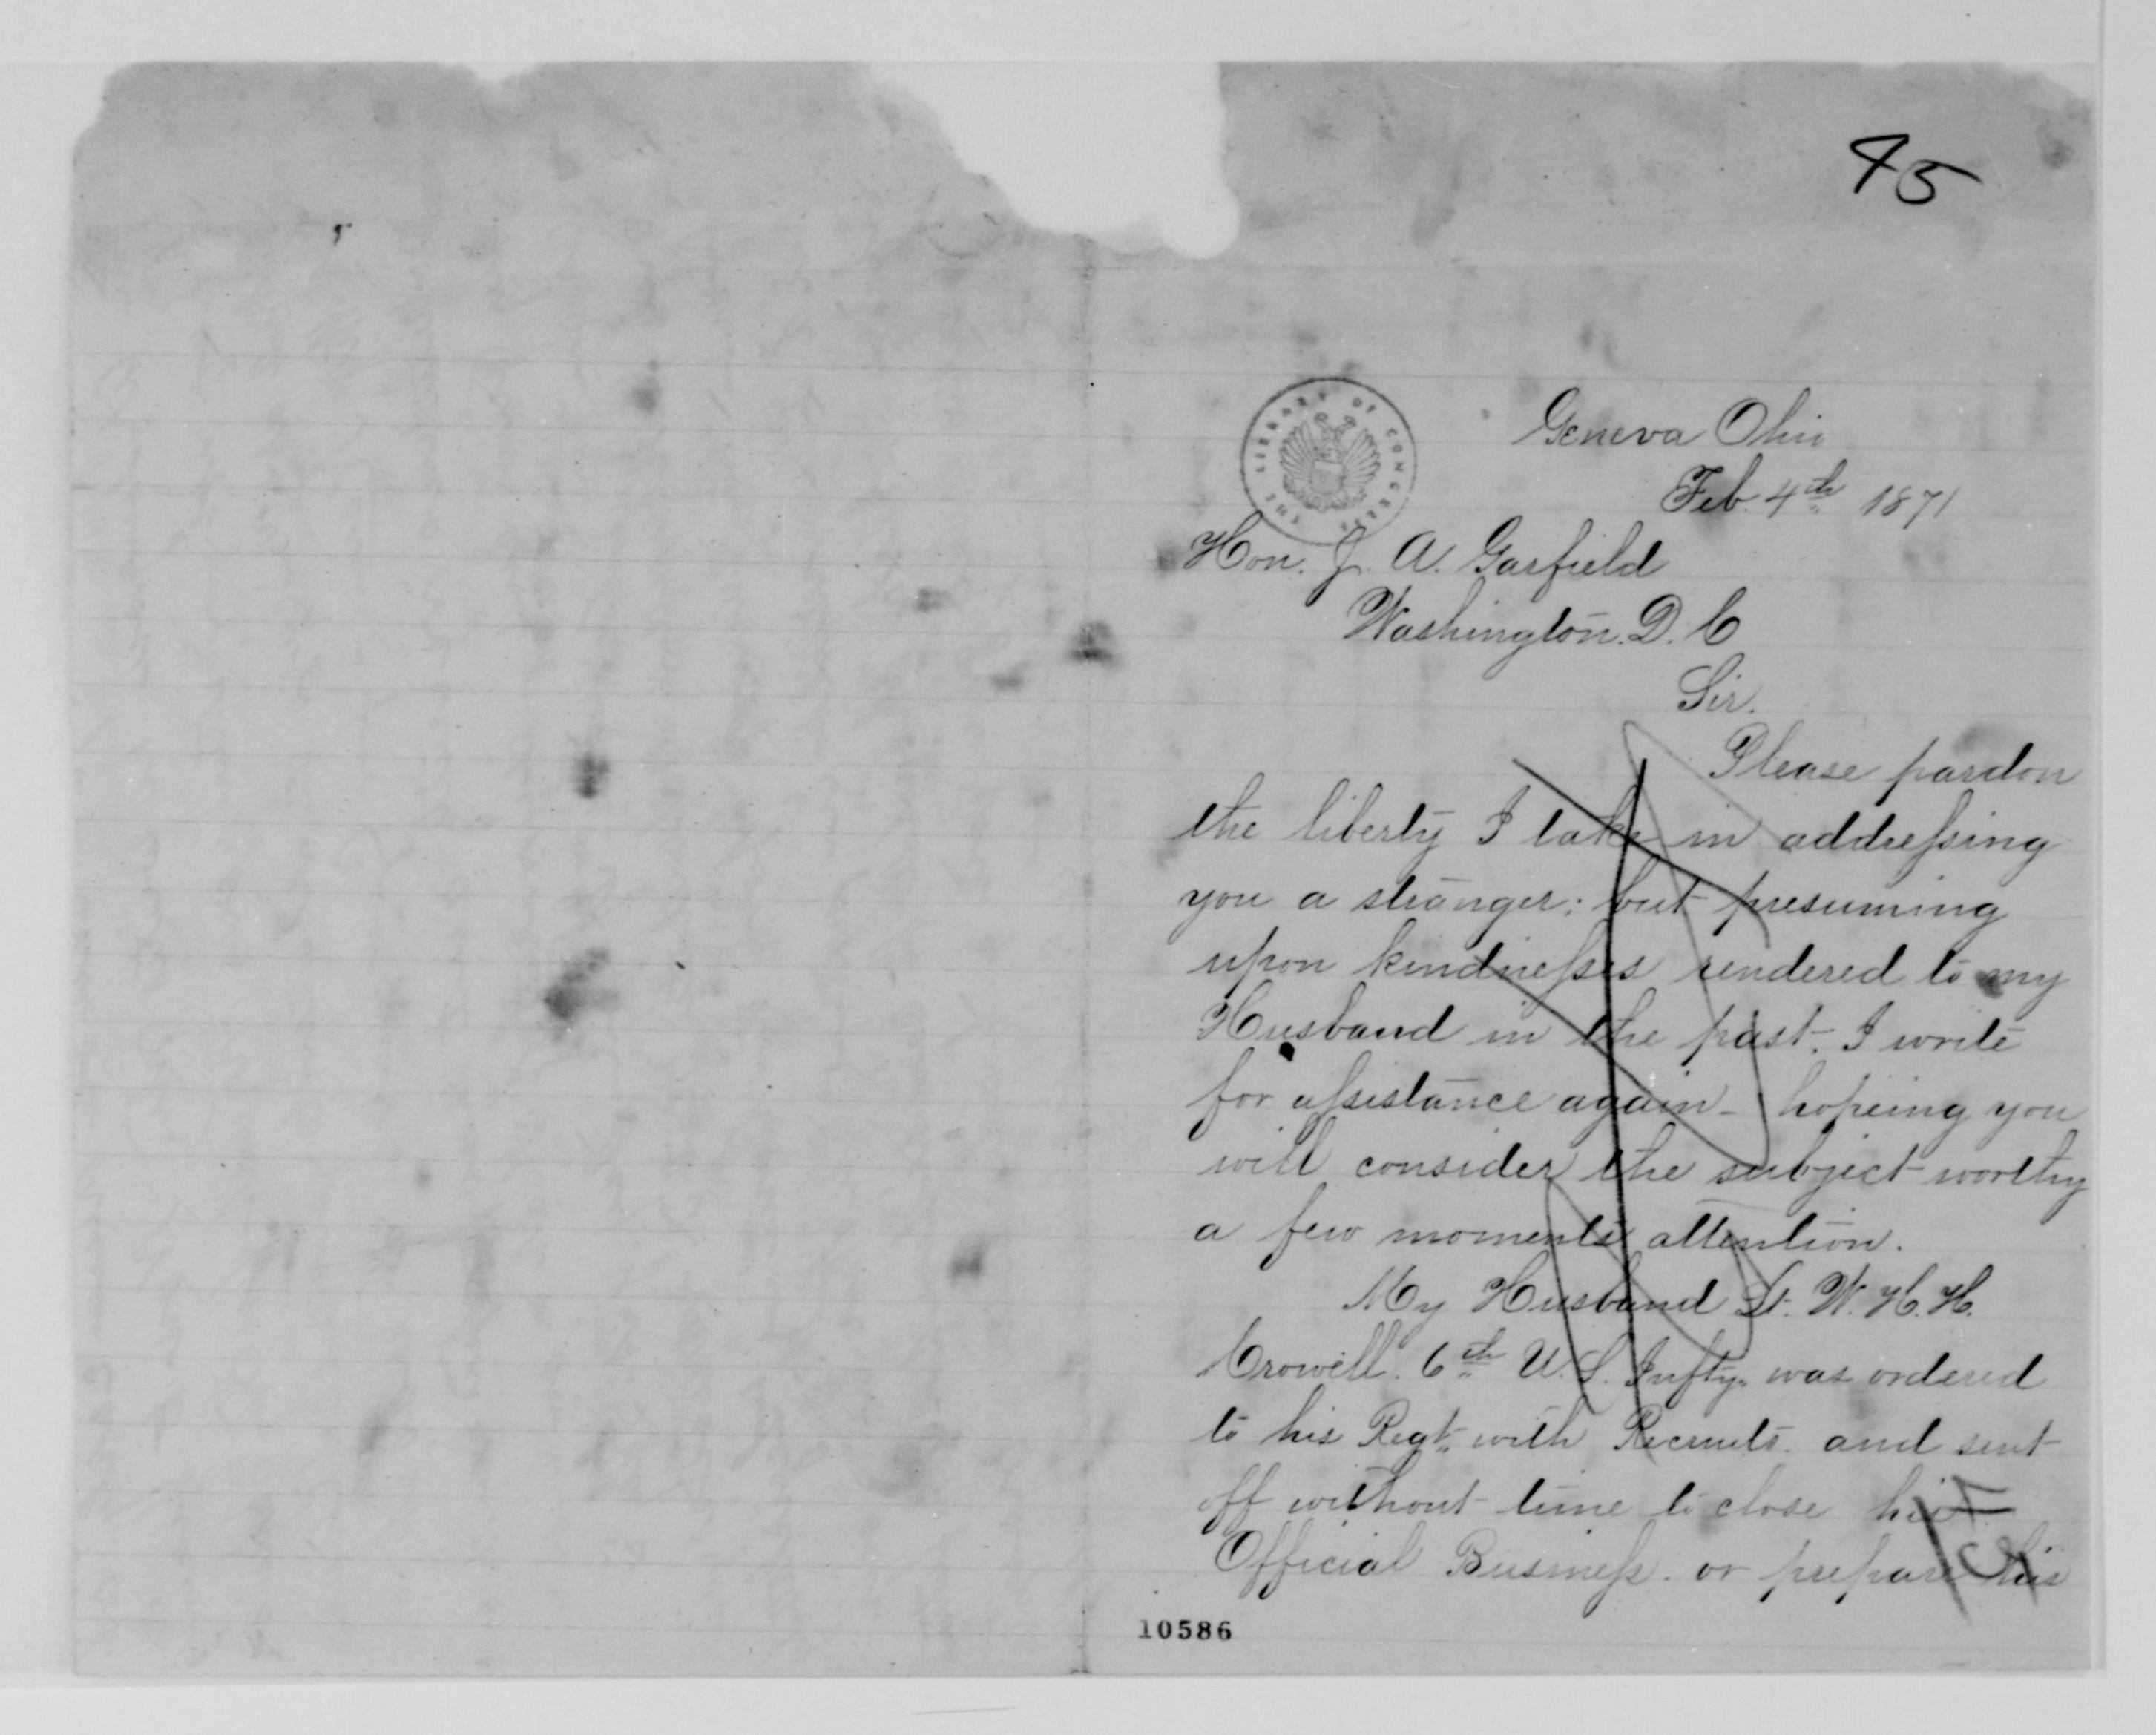 45
THE LIBRARY OF CONGRESS
Geneva Ohio
Feb. 4th 1871
Hon. J. A. Garfield
Washington. D. C
Sir.
Please pardon
the liberty I take in addressing
you a stranger; but presuming
upon kindnesses rendered to my
Husband in the past. I write
for assistance again - hopeing you
will consider the subject worthy
a few moments attention.
My Husband Lt. W. H. H.
Crowell. 6th U. S. Infty. was ordered
to his Regt. with Recruits. and sent
off without time to close his
Official Business. or prepare his
10586